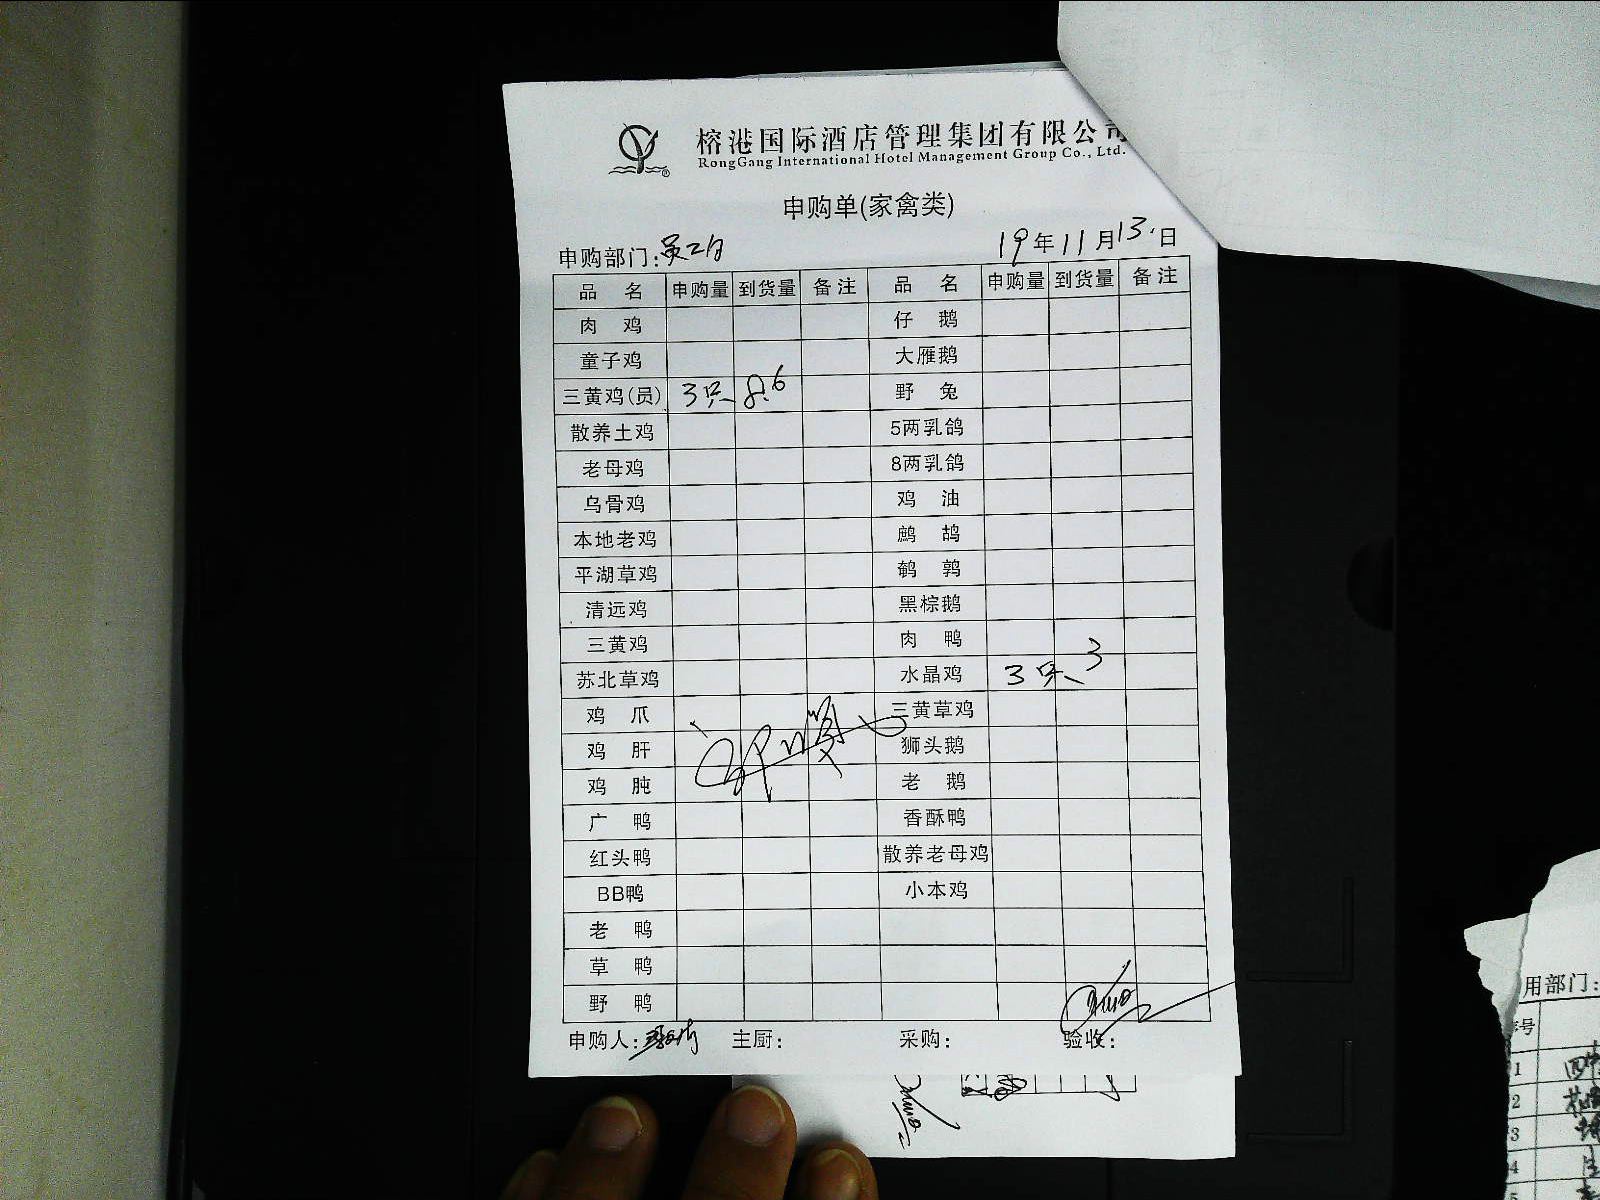 榕港国际酒店管理集团有限公司
RongGang International Hotel Management Group Co., Ltd.
®
申购单(家禽类)
申购部门: 19年11月13.日
品名 申购量 到货量 备注 品名 申购量 到货量 备注
肉鸡 仔鹅
童子鸡 大雁鹅
三黄鸡(员) 3只 8.6 野兔
散养土鸡 5两乳鸽
老母鸡 8两乳鸽
乌骨鸡 鸡油
本地老鸡 鹧鸪
平湖草鸡 鹌鹑
清远鸡 黑棕鹅
三黄鸡 肉鸭
苏北草鸡 水晶鸡 3只 3
鸡爪 三黄草鸡
鸡肝 狮头鹅
鸡肫 老鹅
广鸭 香酥鸭
红头鸭 散养老母鸡
BB鸭 小本鸡
老鸭
草鸭
野鸭
申购人: 主厨: 采购: 验收:
用部门:
号
1
2
3
4